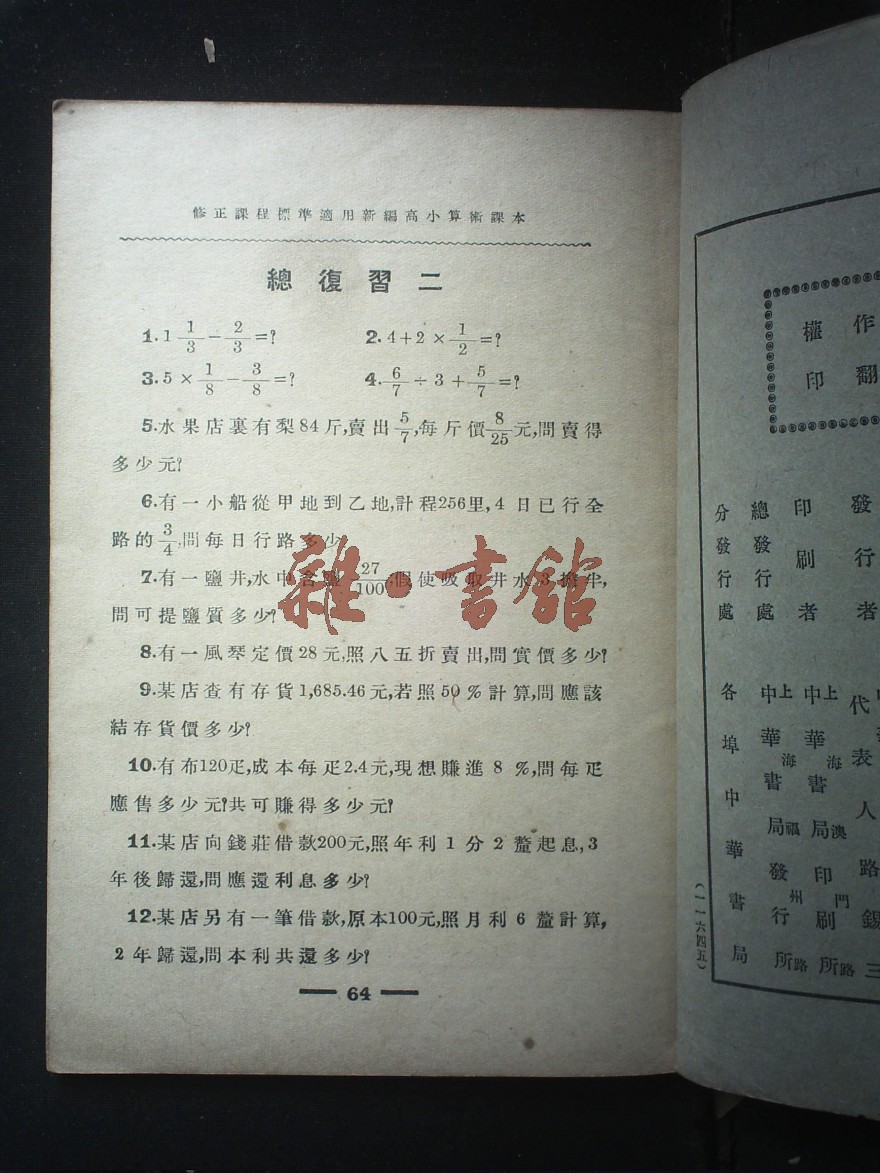 修正課程標準適用新編高小算術課本
總復習二
1. 1 1/3 − 2/3 =?
2. 4+2× 1/2 =?
3. 5× 1/8 − 3/8 =?
4. 6/7 ÷3+ 5/7 =?
5.水果店裏有梨84斤,賣出5/7,每斤價8/25元,問賣得
多少元?
6.有一小船從甲地到乙地,計程256里,4日已行全
路的3/4,問每日行路多少
7.有一鹽井,水中含鹽27/100,假使吸取井水3擔半,
問可提鹽質多少?
8.有一風琴定價28元,照八五折賣出,問實價多少?
9.某店查有存貨1,685.46元,若照50%計算,問應該
結存貨價多少?
10.有布120疋,成本每疋2.4元,現想賺進8%,問每疋
應售多少元?共可賺得多少元?
11.某店向錢莊借款200元,照年利1分2釐起息,3
年後歸還,問應還利息多少?
12.某店另有一筆借款,原本100元,照月利6釐計算,
2年歸還,問本利共還多少?
64
雜·書館
作
權
翻
印
發行者
印刷者
總發行處
分發行處
代表人 路錫三
上海澳門路
中華書局印刷所
上海福州路
中華書局發行所
各埠中華書局
(一一六四五)